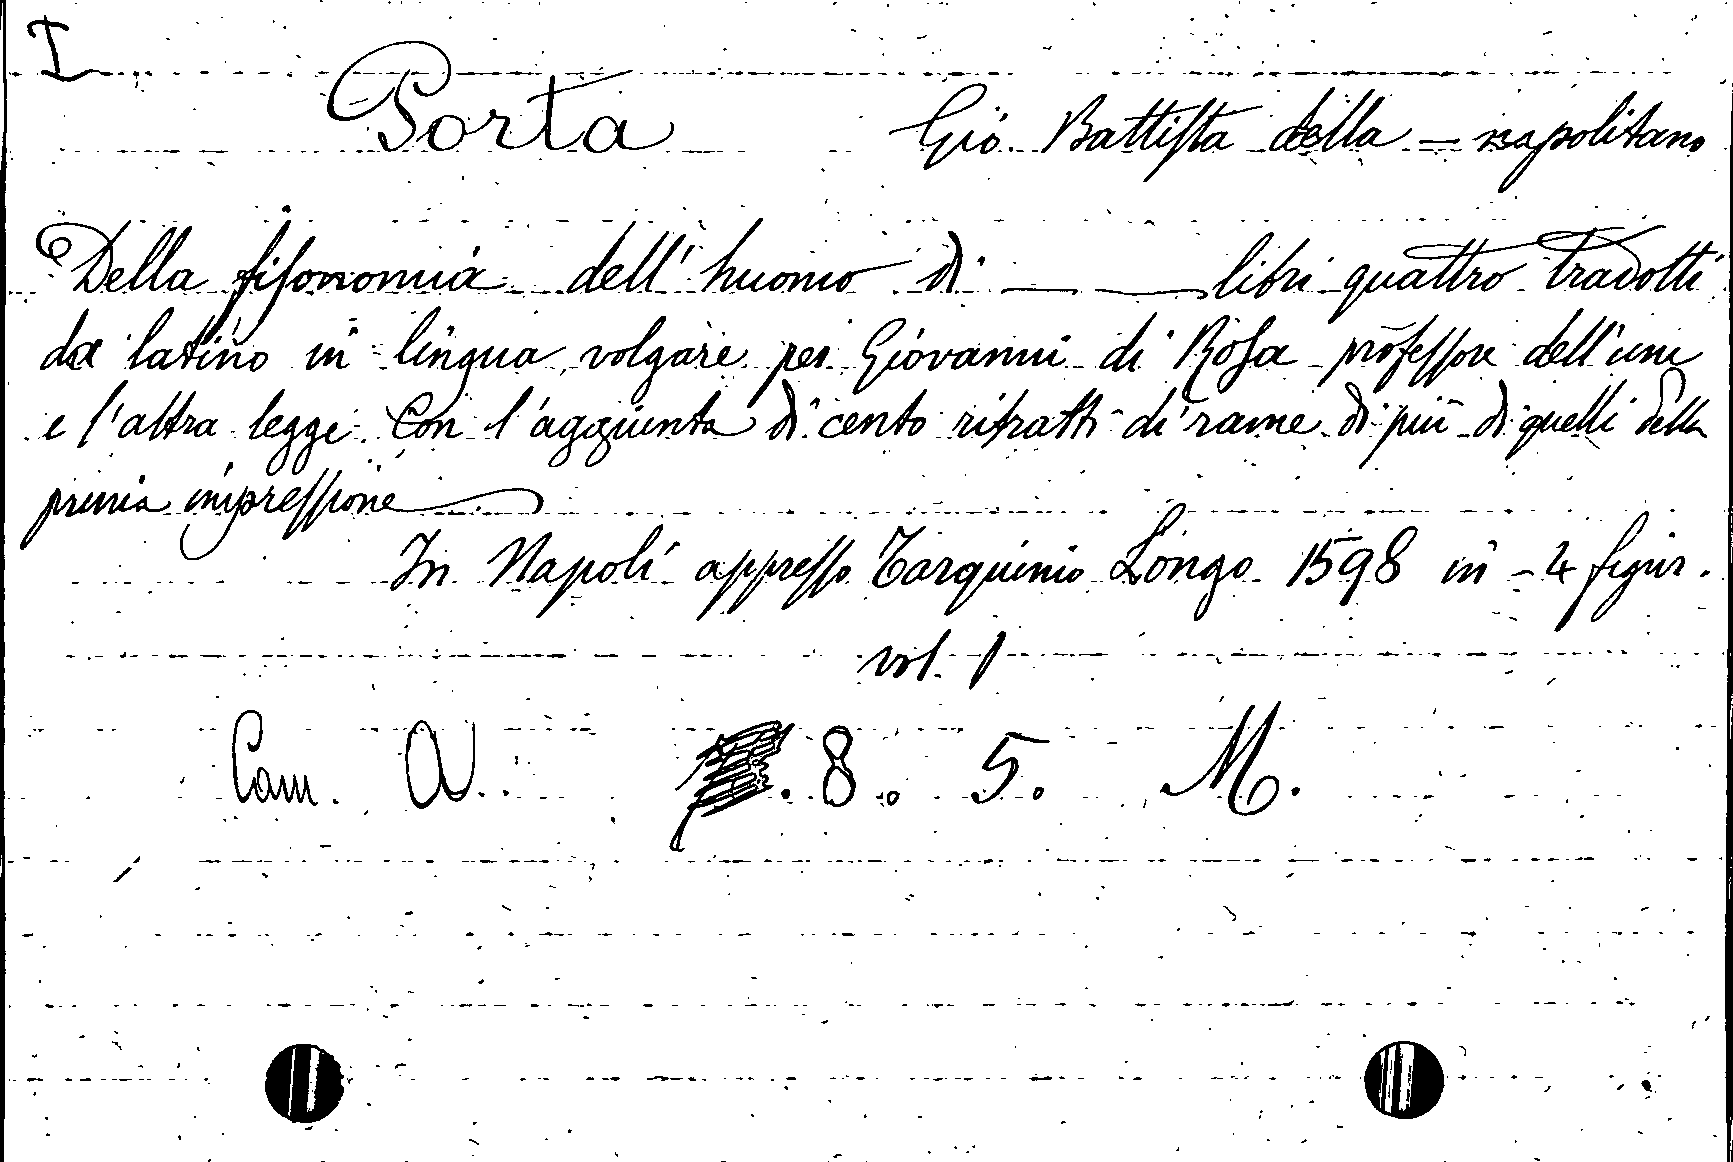 I
Porta Gio. Battista della – napolitano
Della fisonomia dell' huomo di — — libri quattro tradotti
da latino in lingua volgare per Giovanni di Rosa professore dell'una
e l'altra legge. Con l'aggiunta di cento ritratti di rame di più di quelli della
prima impressione
In Napoli appresso Tarquinio Longo 1598 in-4 figur.
vol. 1
Cam. A. . 8. 5. M.